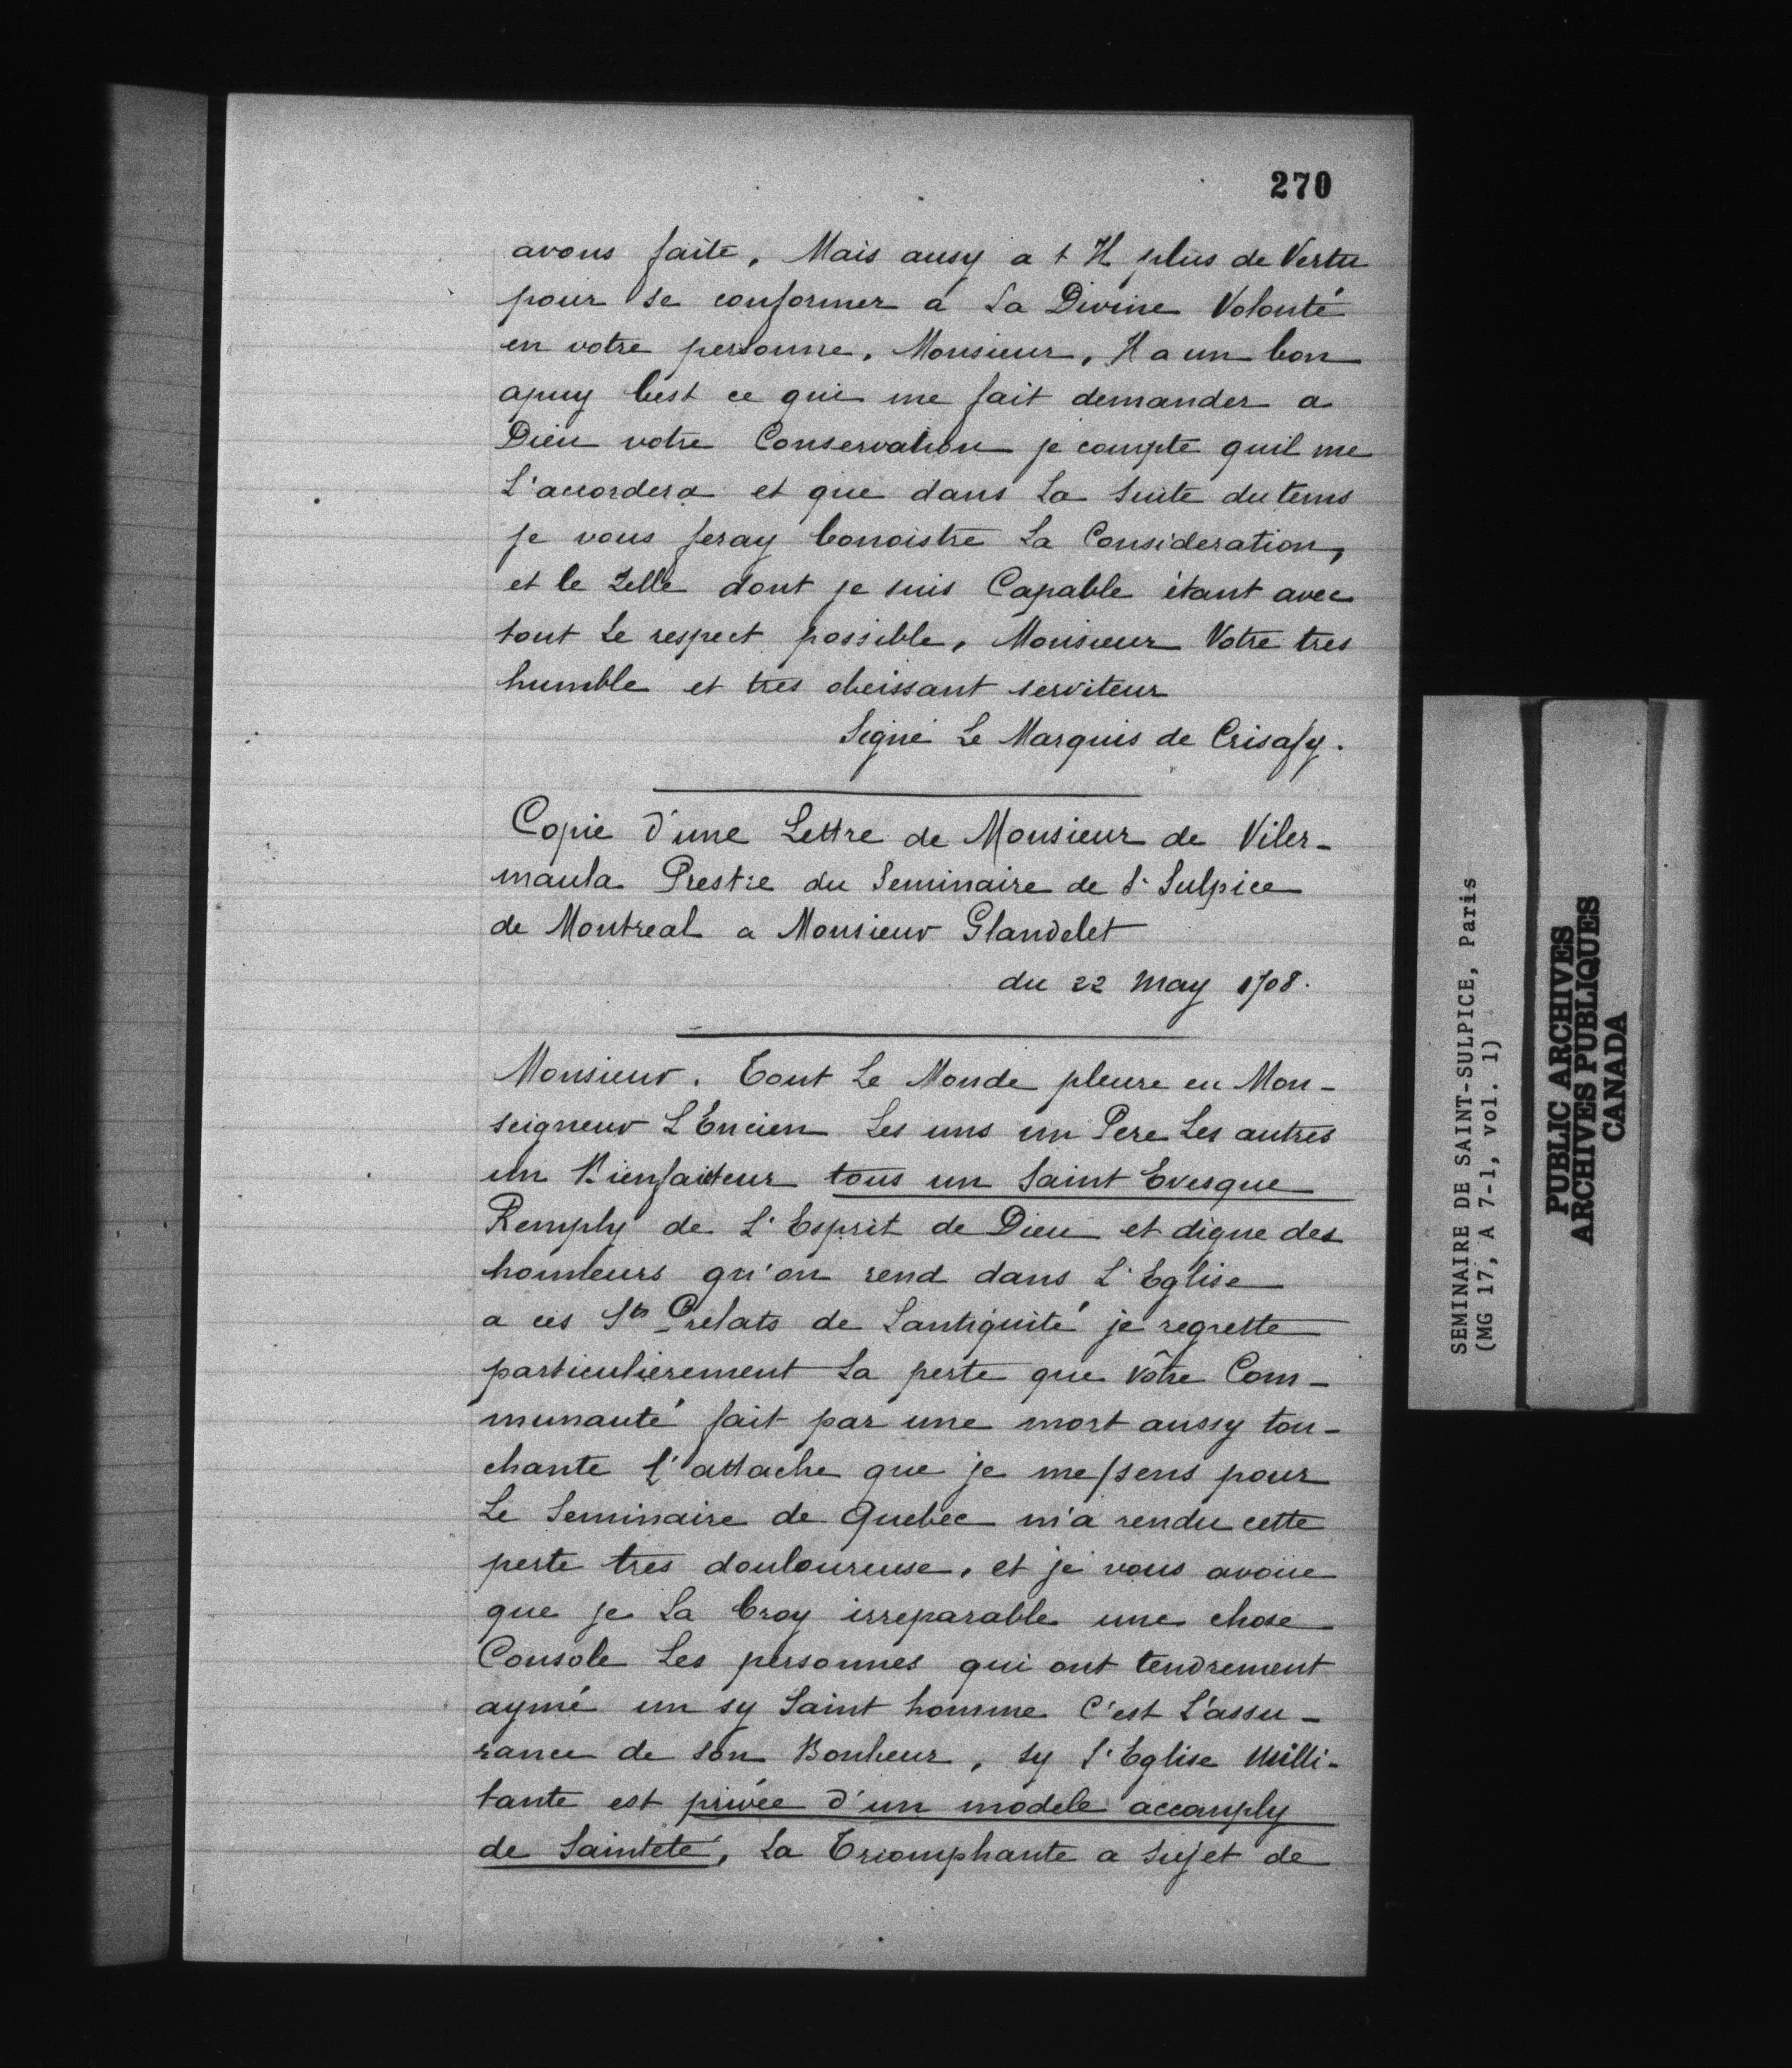 270
avons faite. Mais ausy a t Il plus de Vertu
pour se conformer a La Divine Volonté
en votre personne. Monsieur. Il a un bon
apuy C'est ce qui me fait demander a
Dieu votre Conservation je compte quil me
L'accordera et que dans La Suite du tems
je vous feray Conoistre La Consideration,
et le Zelle dont je suis Capable étant avec
tout Le respect possible. Monsieur Votre tres
humble et tres obeissant serviteur
Signé Le Marquis de Crisafy.
Copie d'une Lettre de Monsieur de Viler-
maula Prestre du Seminaire de St Sulpice
de Montreal a Monsieur Glandelet
du 22 May 1708.
Monsieur. Tout Le Monde pleure en Mon-
seigneur L'Encien Les uns un Pere Les autres
un Bienfaiteur tous un Saint Evesque
Remply de L'Esprit de Dieu et digne des
honneurs qu'on rend dans L'Eglise
a ces Sts Prelats de Lantiquité je regrette
particulierement La perte que vôtre Com-
munauté fait par une mort aussy tou-
chante l'attache que je me sens pour
Le Seminaire de Quebec m'a rendu cette
perte tres douloureuse, et je vous avoüe
que je La Croy irreparable une chose
Console Les personnes qui ont tendrement
aymé un sy Saint homme C'est L'assu-
rance de son Bonheur, sy l'Eglise Milli-
tante est privée d'un modele accomply
de Sainteté, La Triomphante a Sujet de
SEMINAIRE DE SAINT-SULPICE, Paris
(MG 17, A 7-1, vol. 1)
PUBLIC ARCHIVES
ARCHIVES PUBLIQUES
CANADA